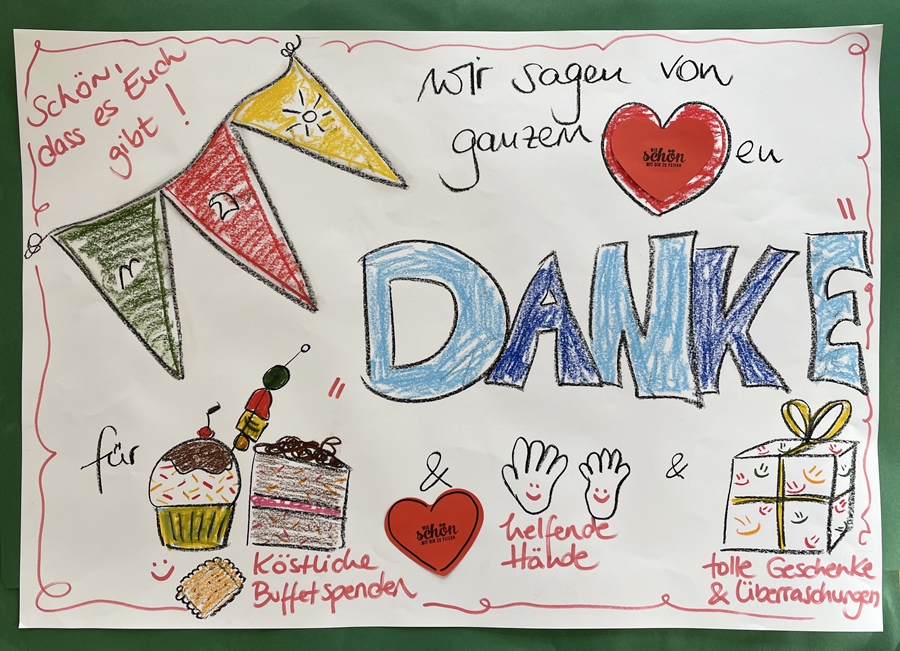 Schön,
dass es Euch
gibt !
Wir sagen von
ganzem
WIE
schön
MIT DIR ZU FEIERN
en
"DANKE"
für
&
&
WIE
schön
MIT DIR ZU FEIERN
köstliche
Buffetspenden
helfende
Hände
tolle Geschenke
& Überraschungen